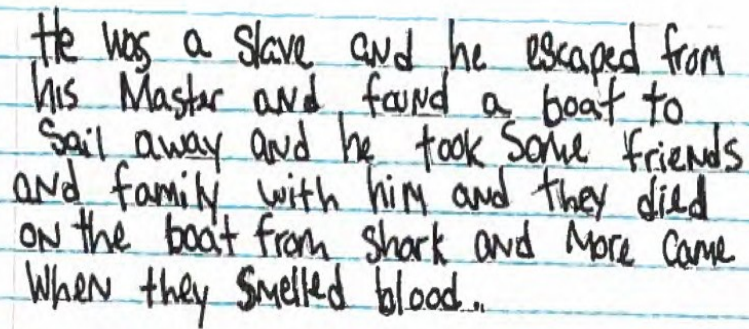 He was a slave and he escaped from
his Master and found a boat to
sail away and he took some friends
and family with him and they died
on the boat from shark and more came
when they smelled blood..